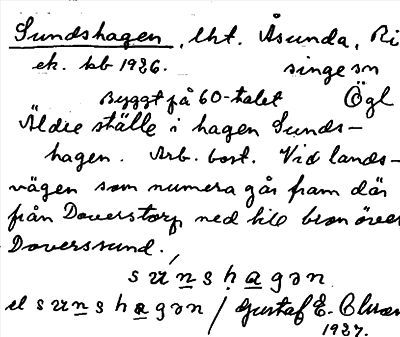 Sundshagen, lht. Åsunda, Ri
ek. kb 1926. singe sn
Byggt på 60-talet Ögl
Äldre ställe i hagen Sunds-
hagen. Arb. bost. Vid lands-
vägen som numera går fram där
från Doverstorp ned till bron över
Doverssund.
sunshagən
el sunshagən / Gustaf E.
1927.